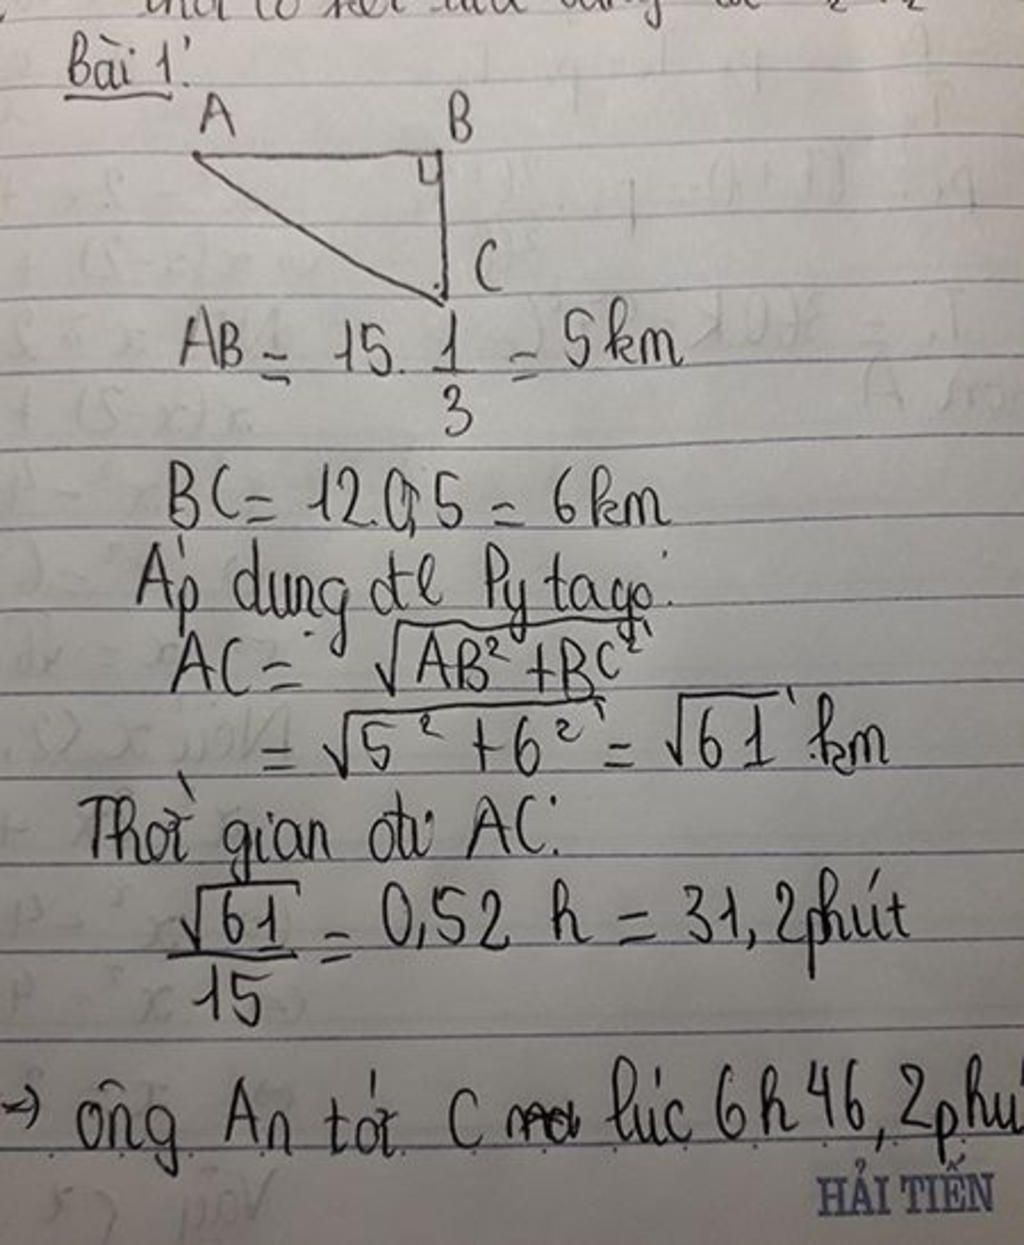 Bài 1:
A B
C
AB = 15. 1/3 = 5km
BC = 12.0,5 = 6km
Áp dụng đl Pytago:
AC = √AB² + BC²
= √5² + 6² = √61 km
Thời gian đi AC:
√61/15 = 0,52 h = 31,2phút
→ ông An tới C lúc 6h46,2phú
HẢI TIẾN